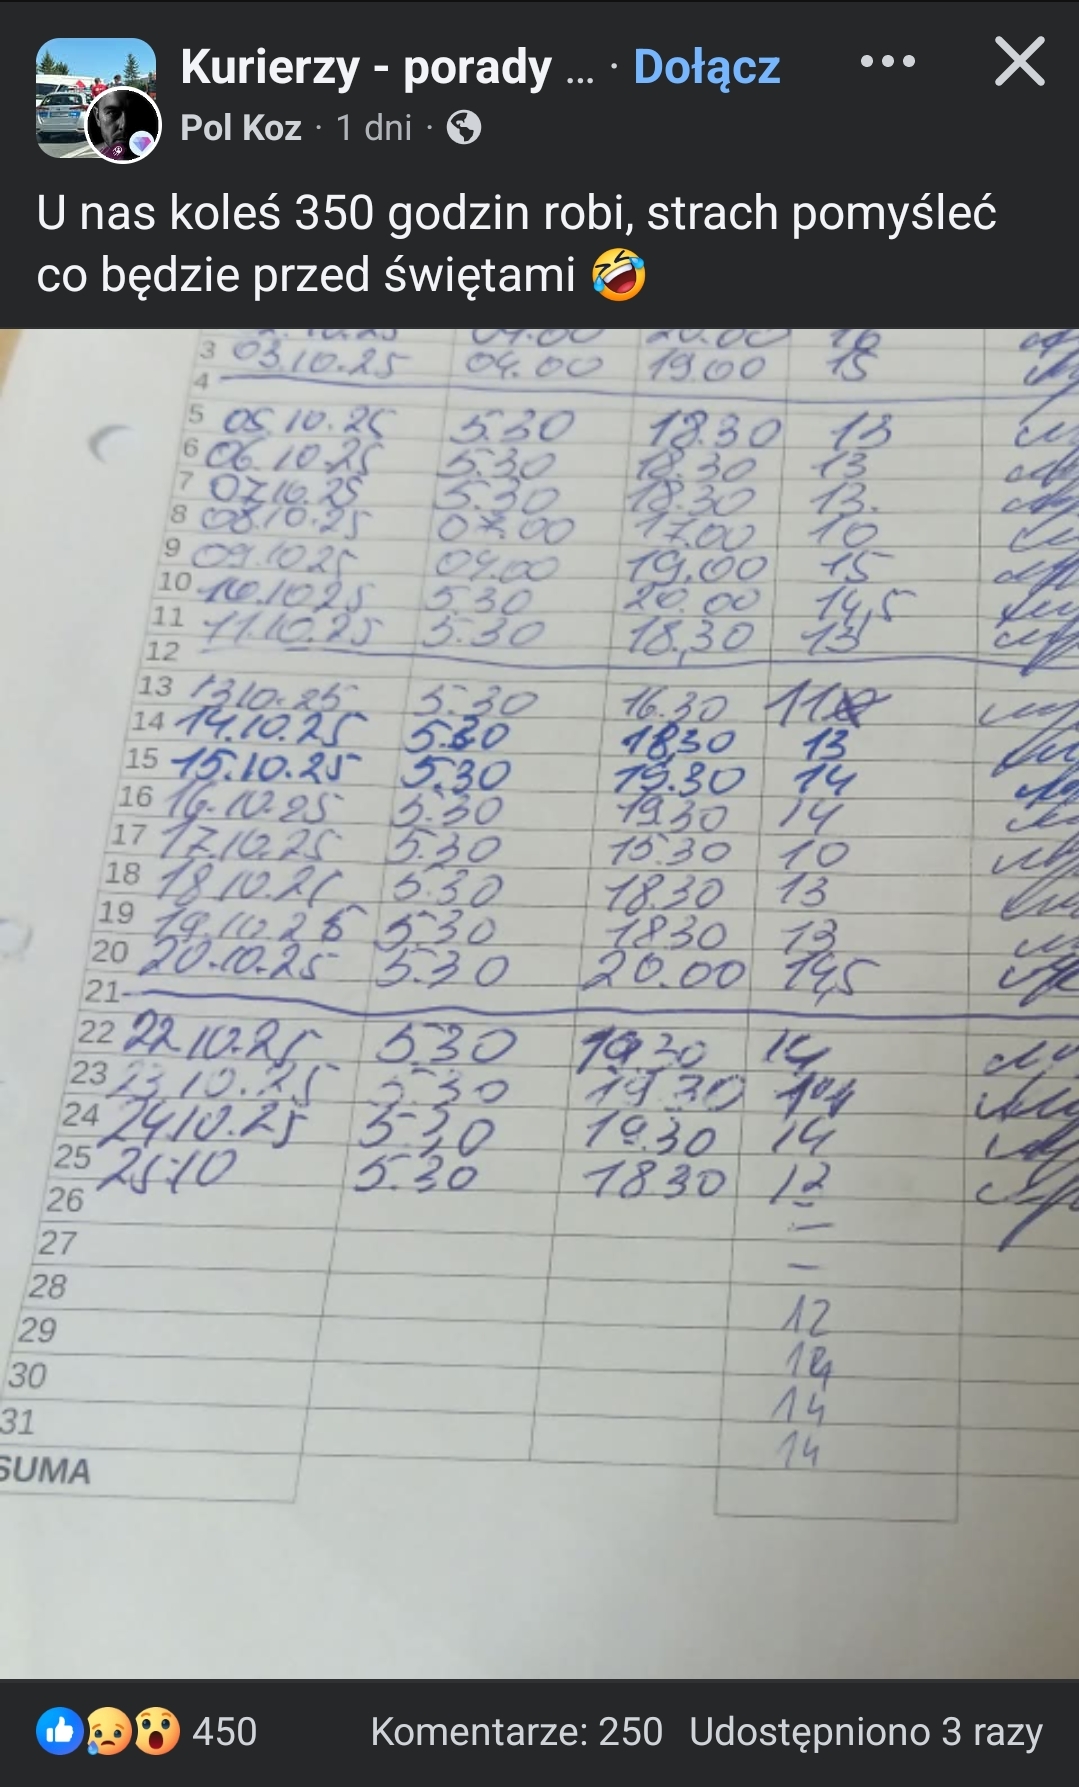 Kurierzy - porady ... · Dołącz
Pol Koz · 1 dni ·
U nas koleś 350 godzin robi, strach pomyśleć
co będzie przed świętami 🤣
04.00 20.00 16
3 03.10.25 04.00 19.00 15
4
5 05.10.25 5.30 18.30 13
6 06.10.25 5.30 18.30 13
7 07.10.25 5.30 18.30 13.
8 08.10.25 07.00 17.00 10
9 09.10.25 04.00 19,00 15
10 10.10.25 5.30 20.00 14,5
11 11.10.25 5.30 18,30 13
12
13 13.10.25 5.30 16.30 11
14 14.10.25 5.30 18,30 13
15 15.10.25 5.30 19.30 14
16 16.10.25 5.30 19.30 14
17 17.10.25 5.30 15.30 10
18 18.10.25 5.30 18.30 13
19 19.10.25 5.30 18.30 13
20 20.10.25 5.30 20.00 14,5
21
22 22.10.25 5.30 19.30 14
23 23.10.25 5.30 19.30 14
24 24.10.25 5.30 19.30 14
25 25.10 5.30 18.30 12
26 –
27 –
28 12
29
30 14
31 14
SUMA
450 Komentarze: 250 Udostępniono 3 razy